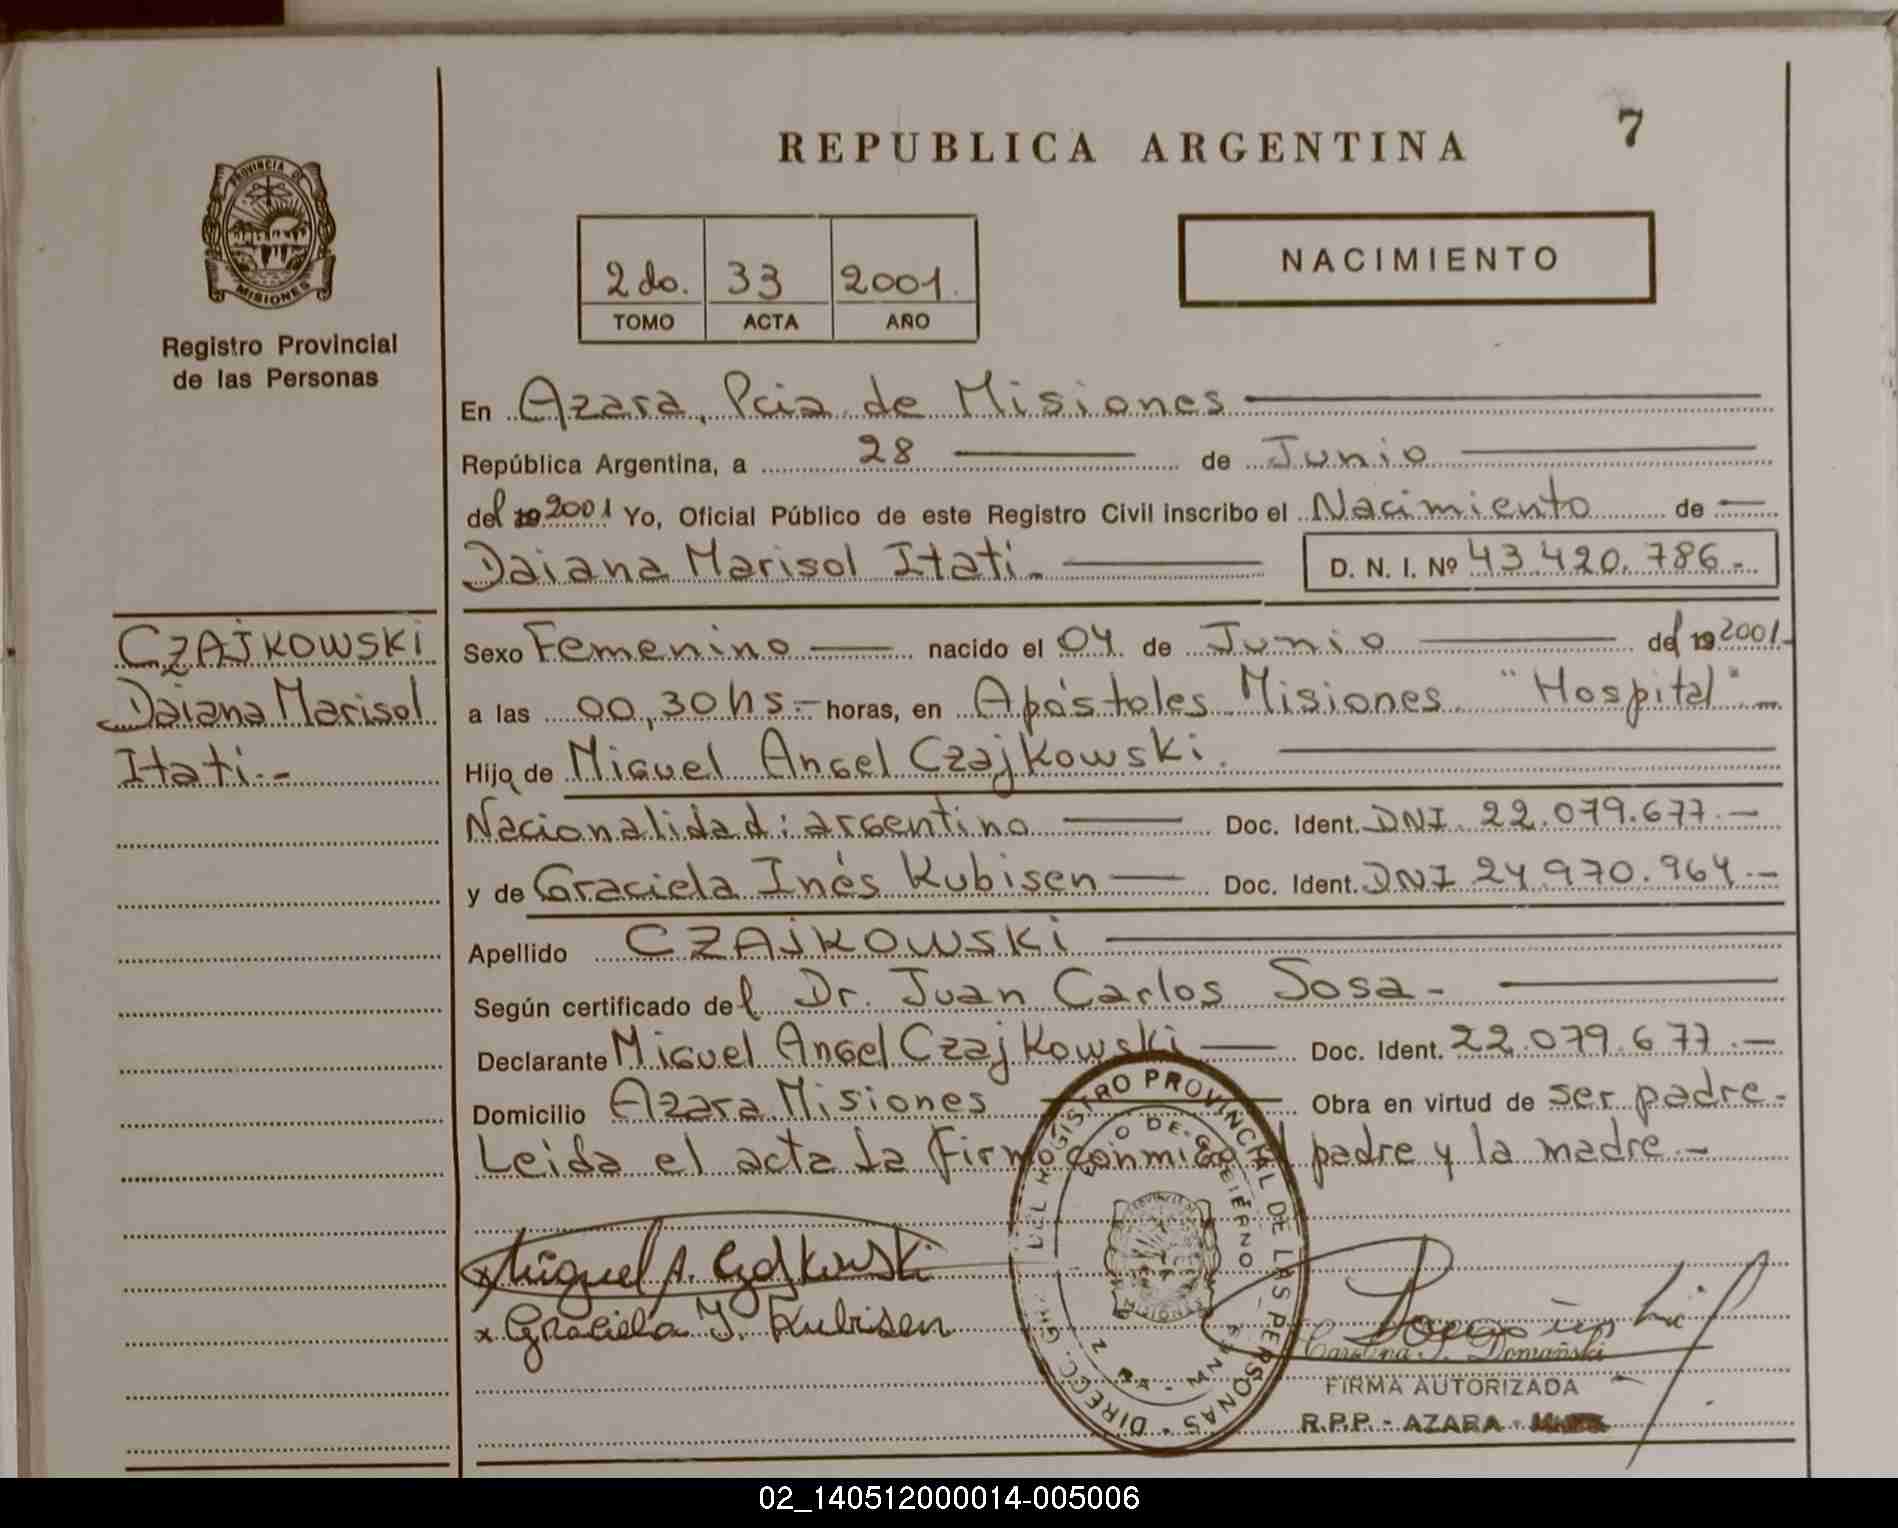 REPUBLICA ARGENTINA
7
PROVINCIA DE
MISIONES
Registro Provincial
de las Personas
2do. 33 2001.
TOMO ACTA AÑO
NACIMIENTO
En Azara, Pcia de Misiones
República Argentina, a 28 de Junio
del 19 2001 Yo, Oficial Público de este Registro Civil inscribo el Nacimiento de
Daiana Marisol Itatí.-
D. N. I. Nº 43.420.786.-
CZAJKOWSKI
Daiana Marisol
Itatí.-
Sexo Femenino nacido el 04 de Junio del 19 2001.-
a las 00,30hs.- horas, en Apóstoles Misiones "Hospital".-
Hijo de Miguel Angel Czajkowski.
Nacionalidad: argentino Doc. Ident. DNI. 22.079.677.-
y de Graciela Inés Kubisen Doc. Ident. DNI 24.970.964.-
Apellido CZAJKOWSKI
Según certificado del Dr. Juan Carlos Sosa.-
Declarante Miguel Angel Czajkowski Doc. Ident. 22.079.677.-
Domicilio Azara Misiones Obra en virtud de ser padre.-
Leída el acta la firmó conmigo el padre y la madre.-
Miguel A. Czajkowski
x Graciela I. Kubisen
DIRECC. GRAL. DEL REGISTRO PROVINCIAL DE LAS PERSONAS
Carolina Domañski
FIRMA AUTORIZADA
R.P.P. - AZARA -
02_140512000014-005006